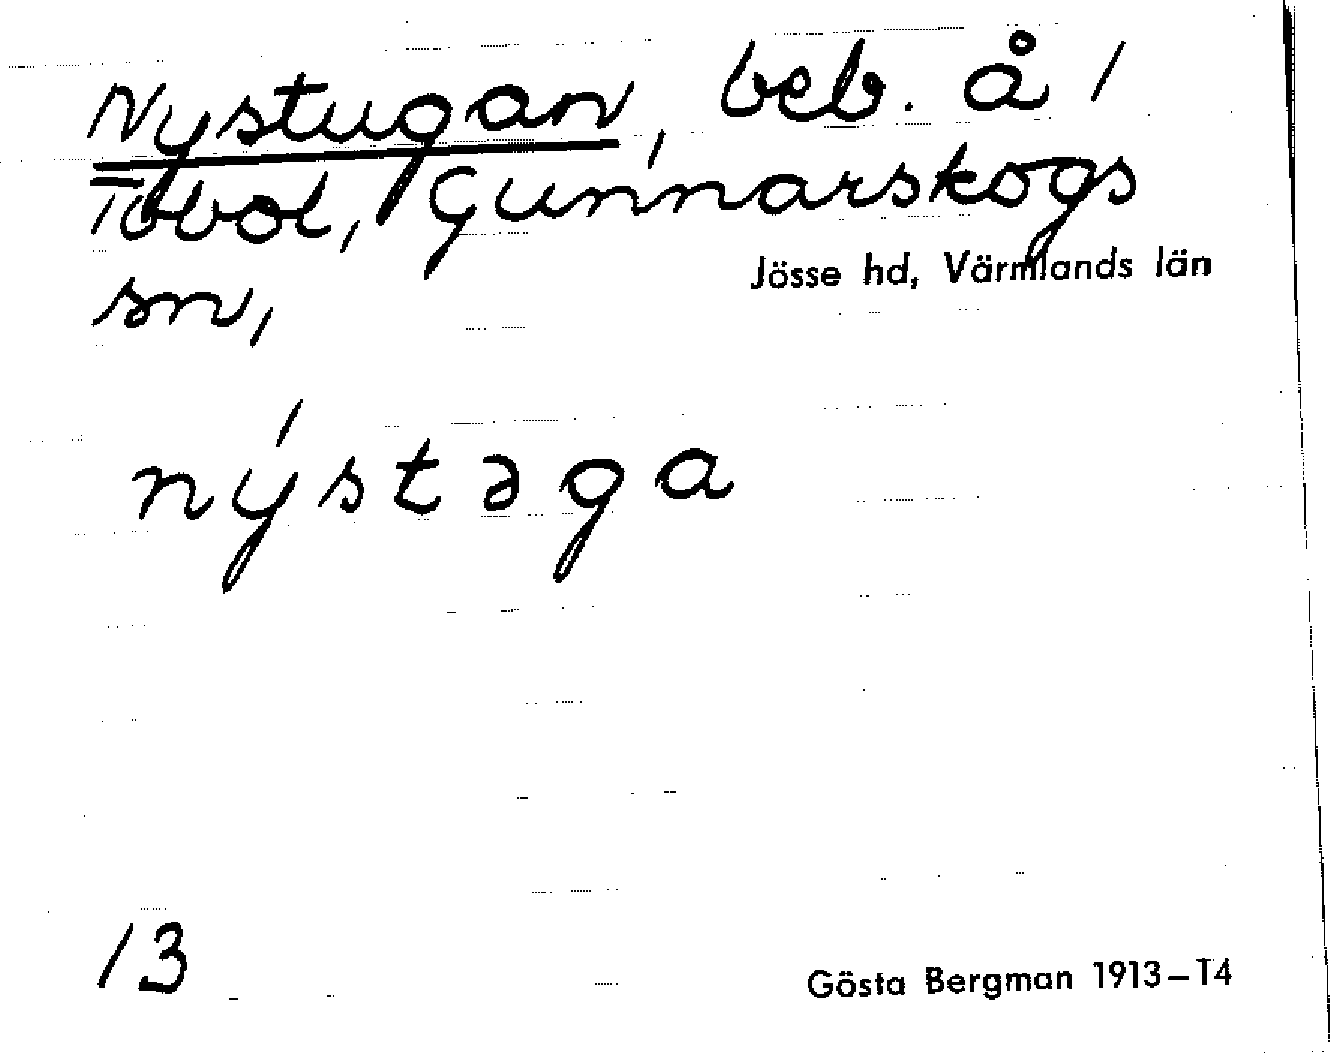 Nystugan, beb. å 1
Tobol, Gunnarskogs
Jösse hd, Värmlands län
sn,
nýstəga
13
Gösta Bergman 1913–14